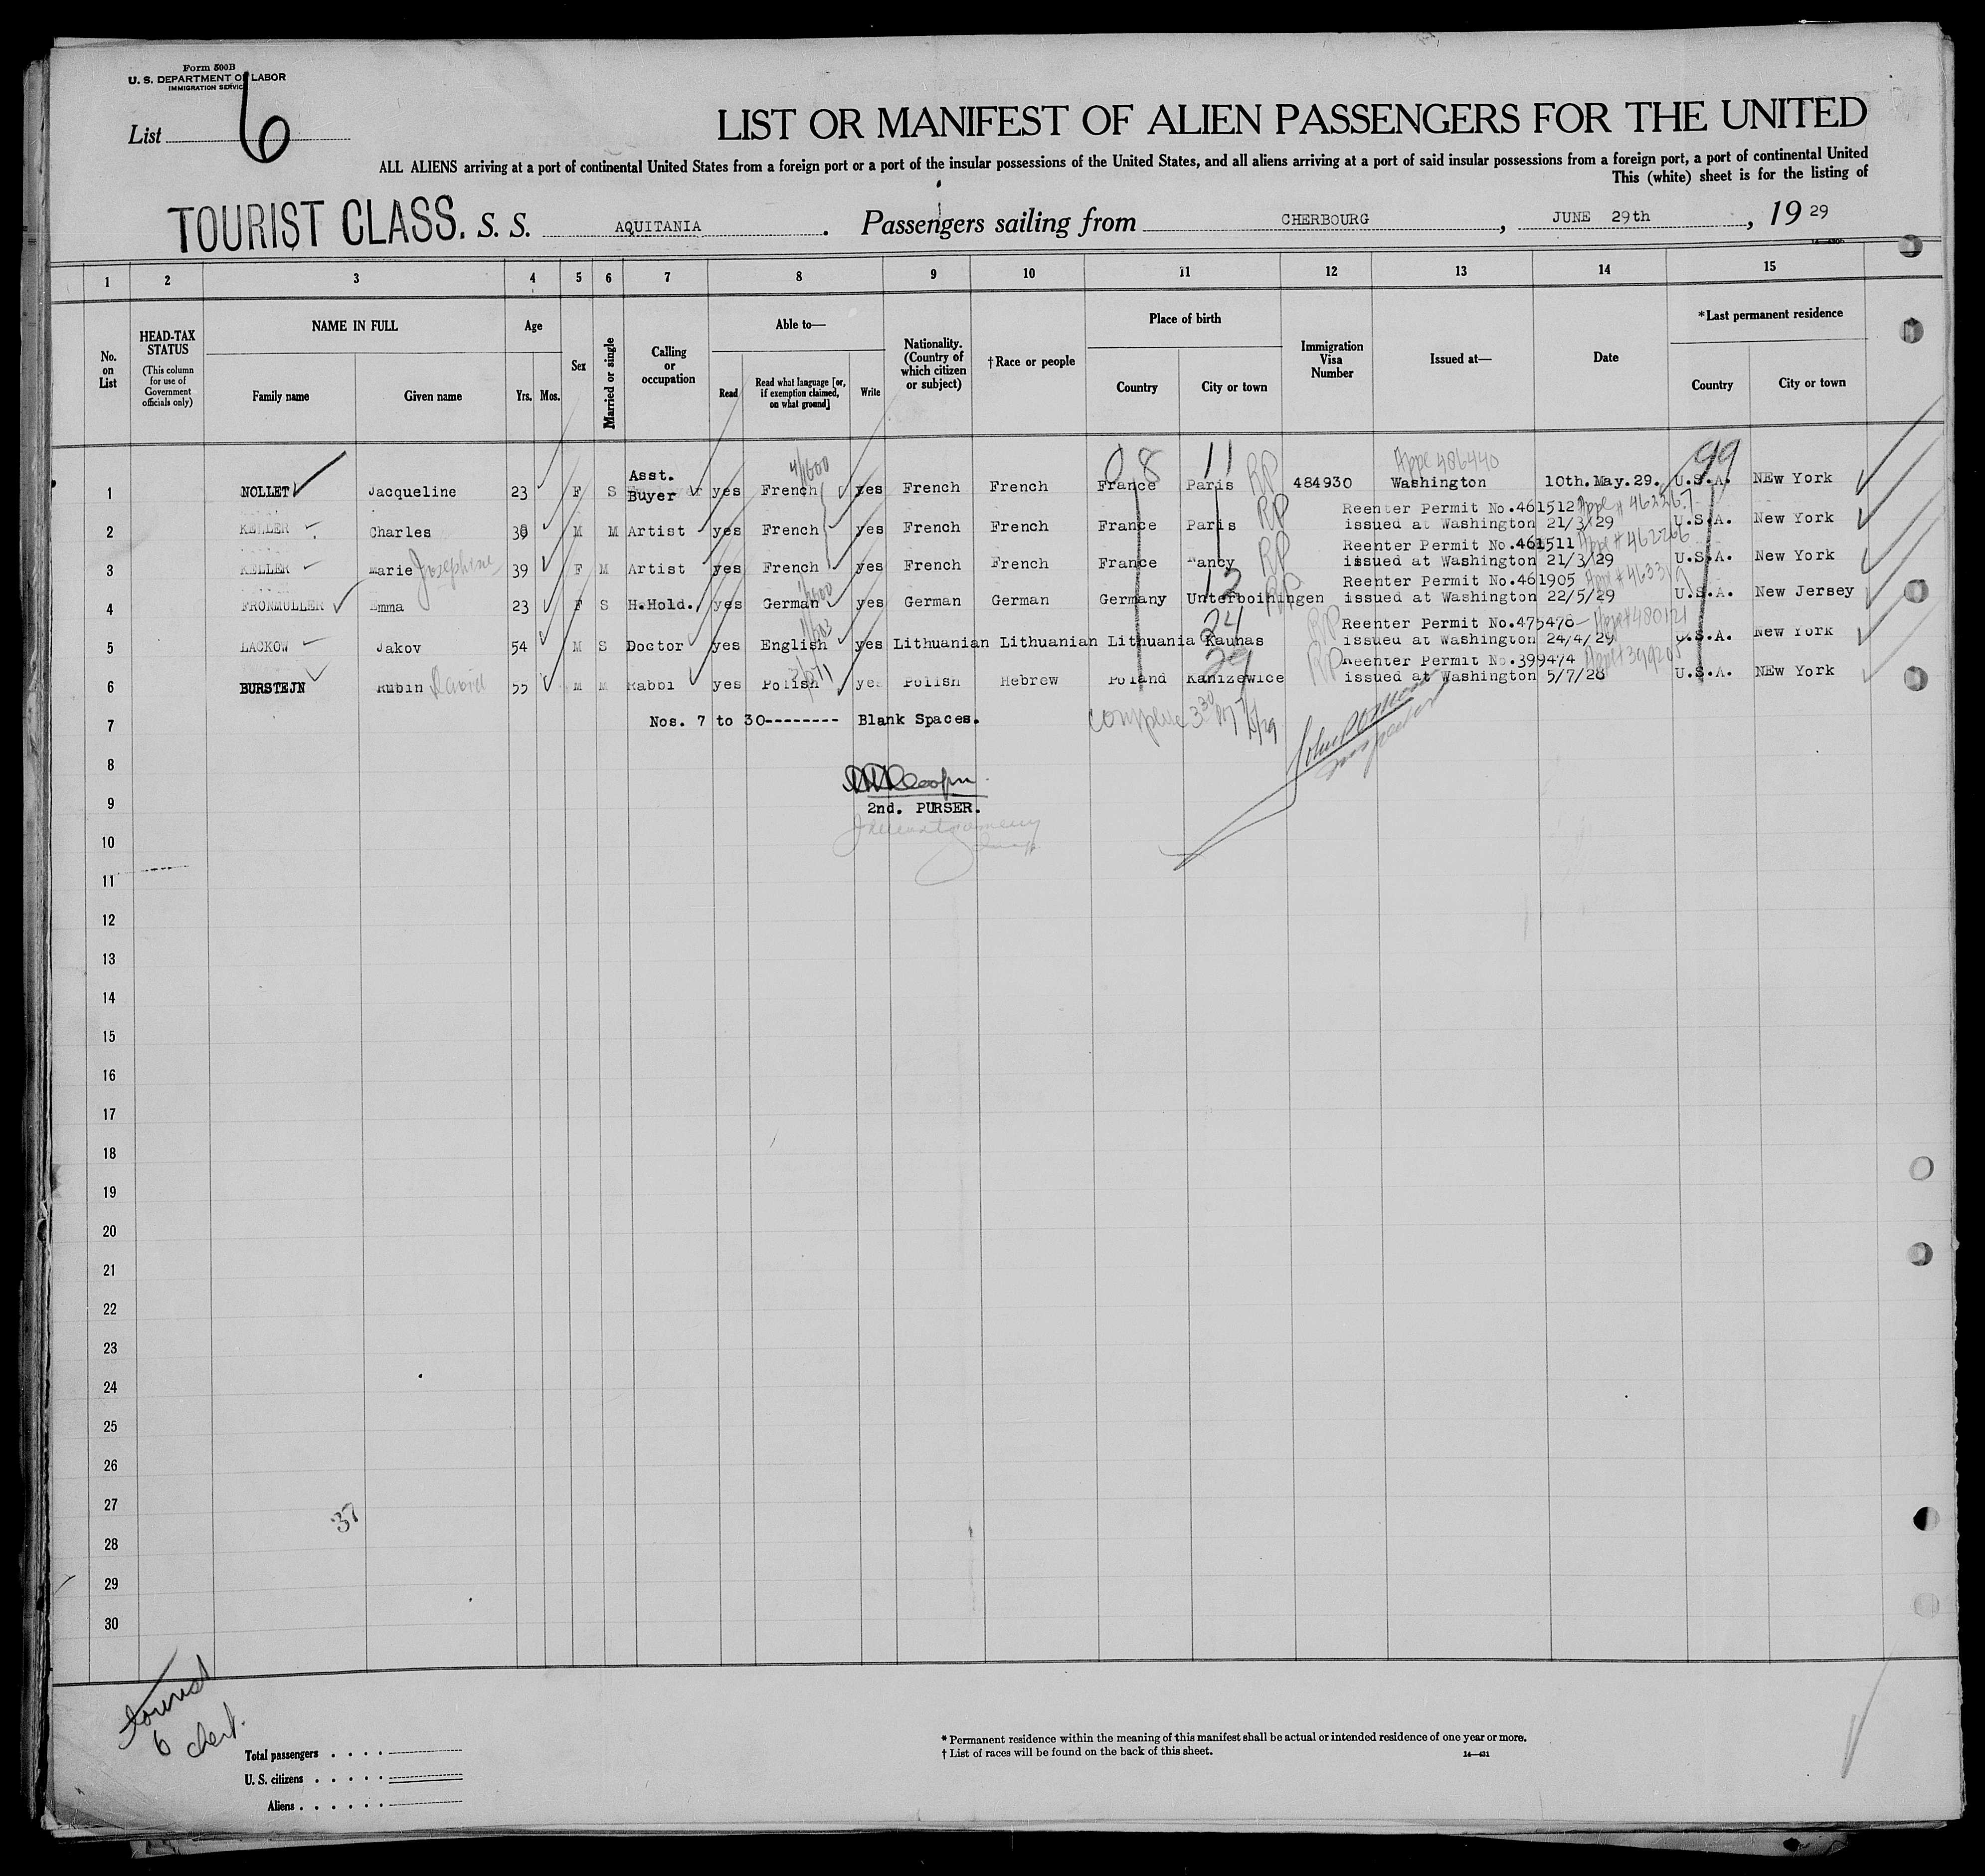 Form 500B
U. S. DEPARTMENT OF LABOR
IMMIGRATION SERVICE
List 6
LIST OR MANIFEST OF ALIEN PASSENGERS FOR THE UNITED
ALL ALIENS arriving at a port of continental United States from a foreign port or a port of the insular possessions of the United States, and all aliens arriving at a port of said insular possessions from a foreign port, a port of continental United
This (white) sheet is for the listing of
TOURIST CLASS. S. S. AQUITANIA. Passengers sailing from CHERBOURG, JUNE 29th, 19 29
1 2 3 4 5 6 7 8 9 10 11 12 13 14 15
No. on List
HEAD-TAX STATUS (This column for use of Government officials only)
NAME IN FULL
Family name
Given name
Age
Yrs. Mos.
Sex
Married or single
Calling or occupation
Able to—
Read
Read what language [or, if exemption claimed, on what ground]
Write
Nationality. (Country of which citizen or subject)
†Race or people
Place of birth
Country
City or town
Immigration Visa Number
Issued at—
Date
*Last permanent residence
Country
City or town
08 11 99
4/1600 Appl 486440
1 NOLLET Jacqueline 23 F S Asst. Buyer yes French yes French French France Paris RP 484930 Washington 10th.May.29. U.S.A. NEw York
Reenter Permit No.461512 Appl # 462267
2 KELLER Charles 39 M M Artist yes French yes French French France Paris RP issued at Washington 21/3/29 U.S.A. New York
Reenter Permit No.461511 Appl # 462266
3 KELLER Marie Josephine 39 F M Artist yes French yes French French France Nancy RP issued at Washington 21/3/29 U.S.A. New York
12
Reenter Permit No.461905
4 FRONMULLER Emma 23 F S H.Hold. yes German yes German German Germany Unterboihingen RP issued at Washington 22/5/29 U.S.A. New Jersey
24
Reenter Permit No.475478 Appl # 480121
5 LACKOW Jakov 54 M S Doctor yes English yes Lithuanian Lithuanian Lithuania Kaunas RP issued at Washington 24/4/29 U.S.A. New York
29
Reenter Permit No.399474
6 BURSTEJN Rubin David 55 M M Rabbi yes Polish yes Polish Hebrew Poland Kanizewice RP issued at Washington 5/7/28 U.S.A. NEw York
7 Nos. 7 to 30-------- Blank Spaces.
complete 3 30
Inspector
8
9 2nd. PURSER.
10
11
12
13
14
15
16
17
18
19
20
21
22
23
24
25
26
27
37
28
29
30
6 cherb.
Total passengers
U. S. citizens
Aliens
* Permanent residence within the meaning of this manifest shall be actual or intended residence of one year or more.
† List of races will be found on the back of this sheet.
14—431